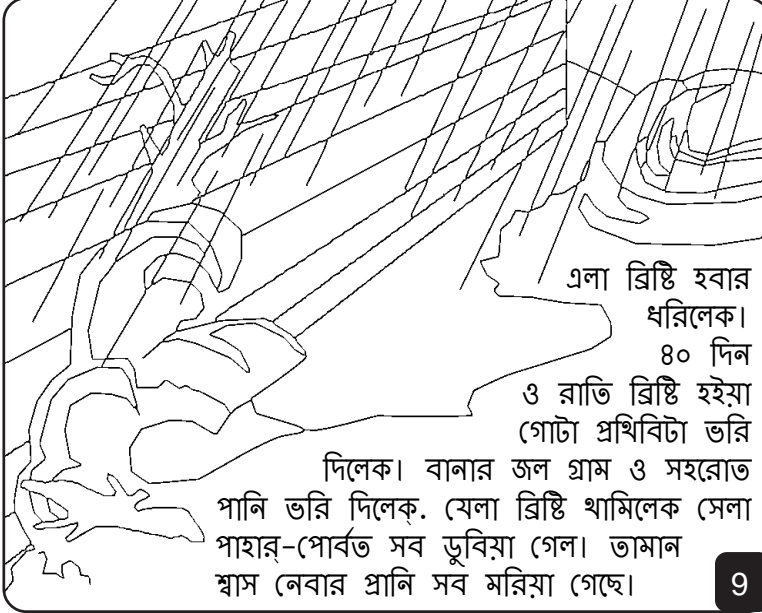 এলা ব্রিষ্টি হবার
ধরিলেক।
৪০ দিন
ও রাতি ব্রিষ্টি হইয়া
গোটা প্রথিবিটা ভরি
দিলেক। বানার জল গ্রাম ও সহরোত
পানি ভরি দিলেক্. যেলা ব্রিষ্টি থামিলেক সেলা
পাহার্-পোর্বত সব ডুবিয়া গেল। তামান
শ্বাস নেবার প্রানি সব মরিয়া গেছে।
9